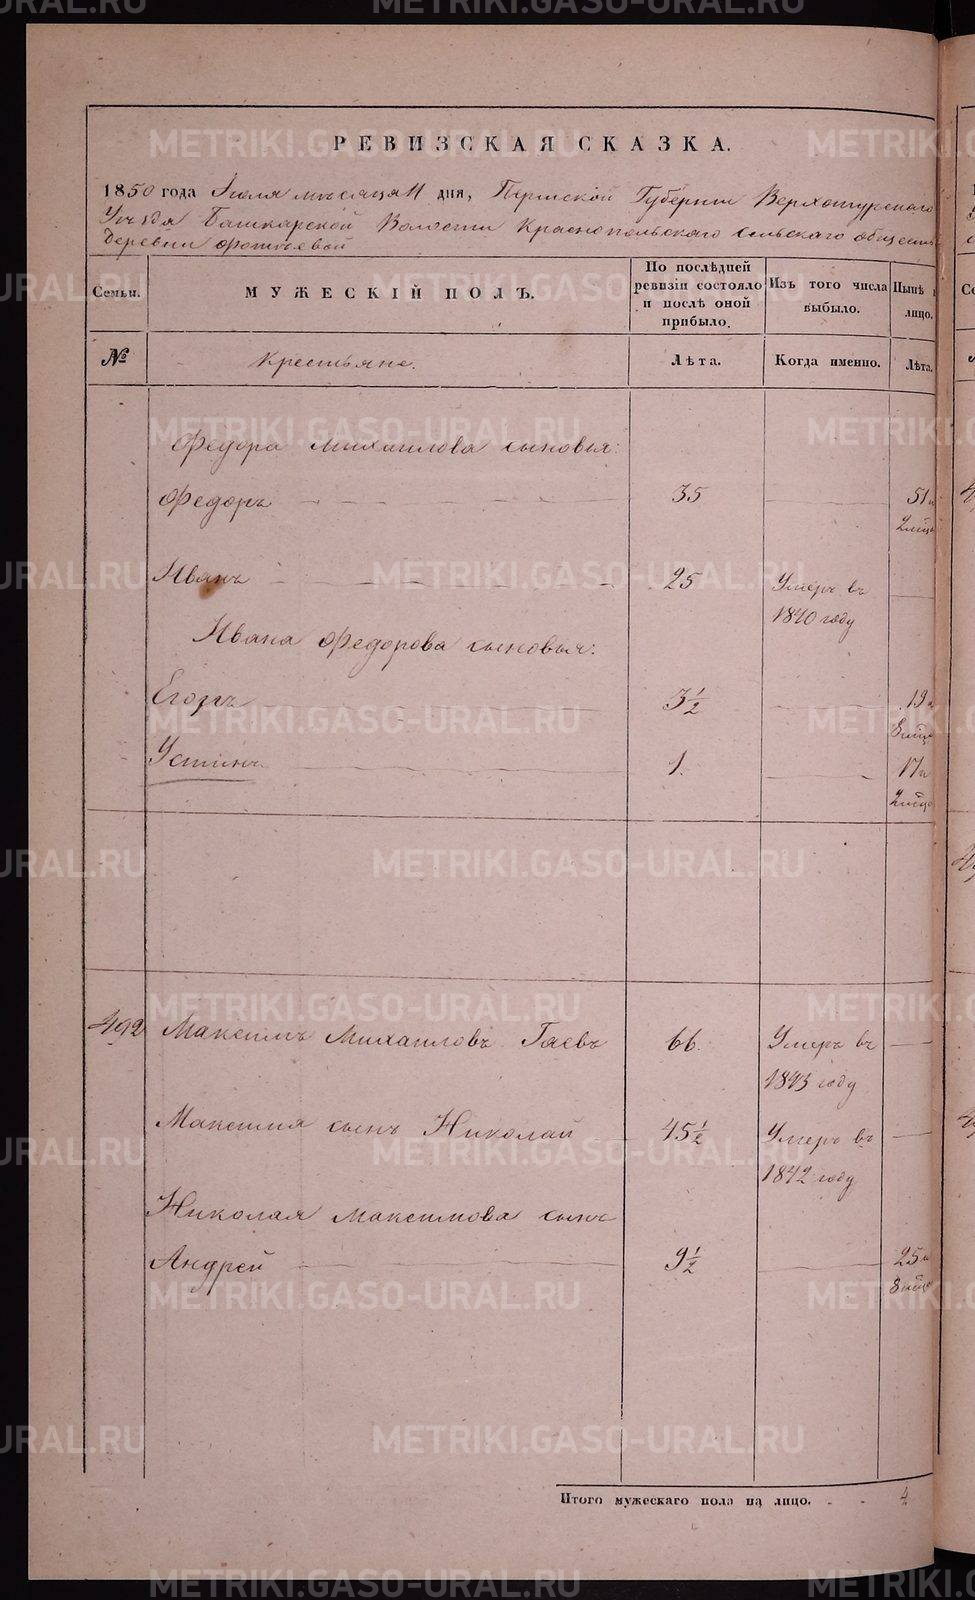 РЕВИЗСКАЯ СКАЗКА.
1850 года Іюля мѣсяца 11 дня, Пермской Губерніи Верхотурскаго
Уѣзда Башкарской Волости Краснопольскаго сельскаго обществ
Деревни Фотѣевой
Семьи.
МУЖЕСКІЙ ПОЛЪ.
По послѣдней
ревизіи состояло
и послѣ оной
прибыло.
Изъ того числа
выбыло.
Нынѣ
лицо.
№
Крестьяне.
Лѣта.
Когда именно.
Лѣта.
Федора Михаилова сыновья:
Федоръ 35 51
2 мѣс
Иванъ 25 Умеръ въ
1840 году
Ивана Федорова сыновья:
Егоръ 3½ 19
8
Устинъ 1. 17
2
492 Максимъ Михаиловъ Гаевъ 66. Умеръ въ
1843 году
Максима сынъ Николай 45½ Умеръ въ
1842 году
Николая Максимова сынъ
Андрей 9½ 25
8
Итого мужескаго пола на лицо. 4
METRIKI.GASO-URAL.RU